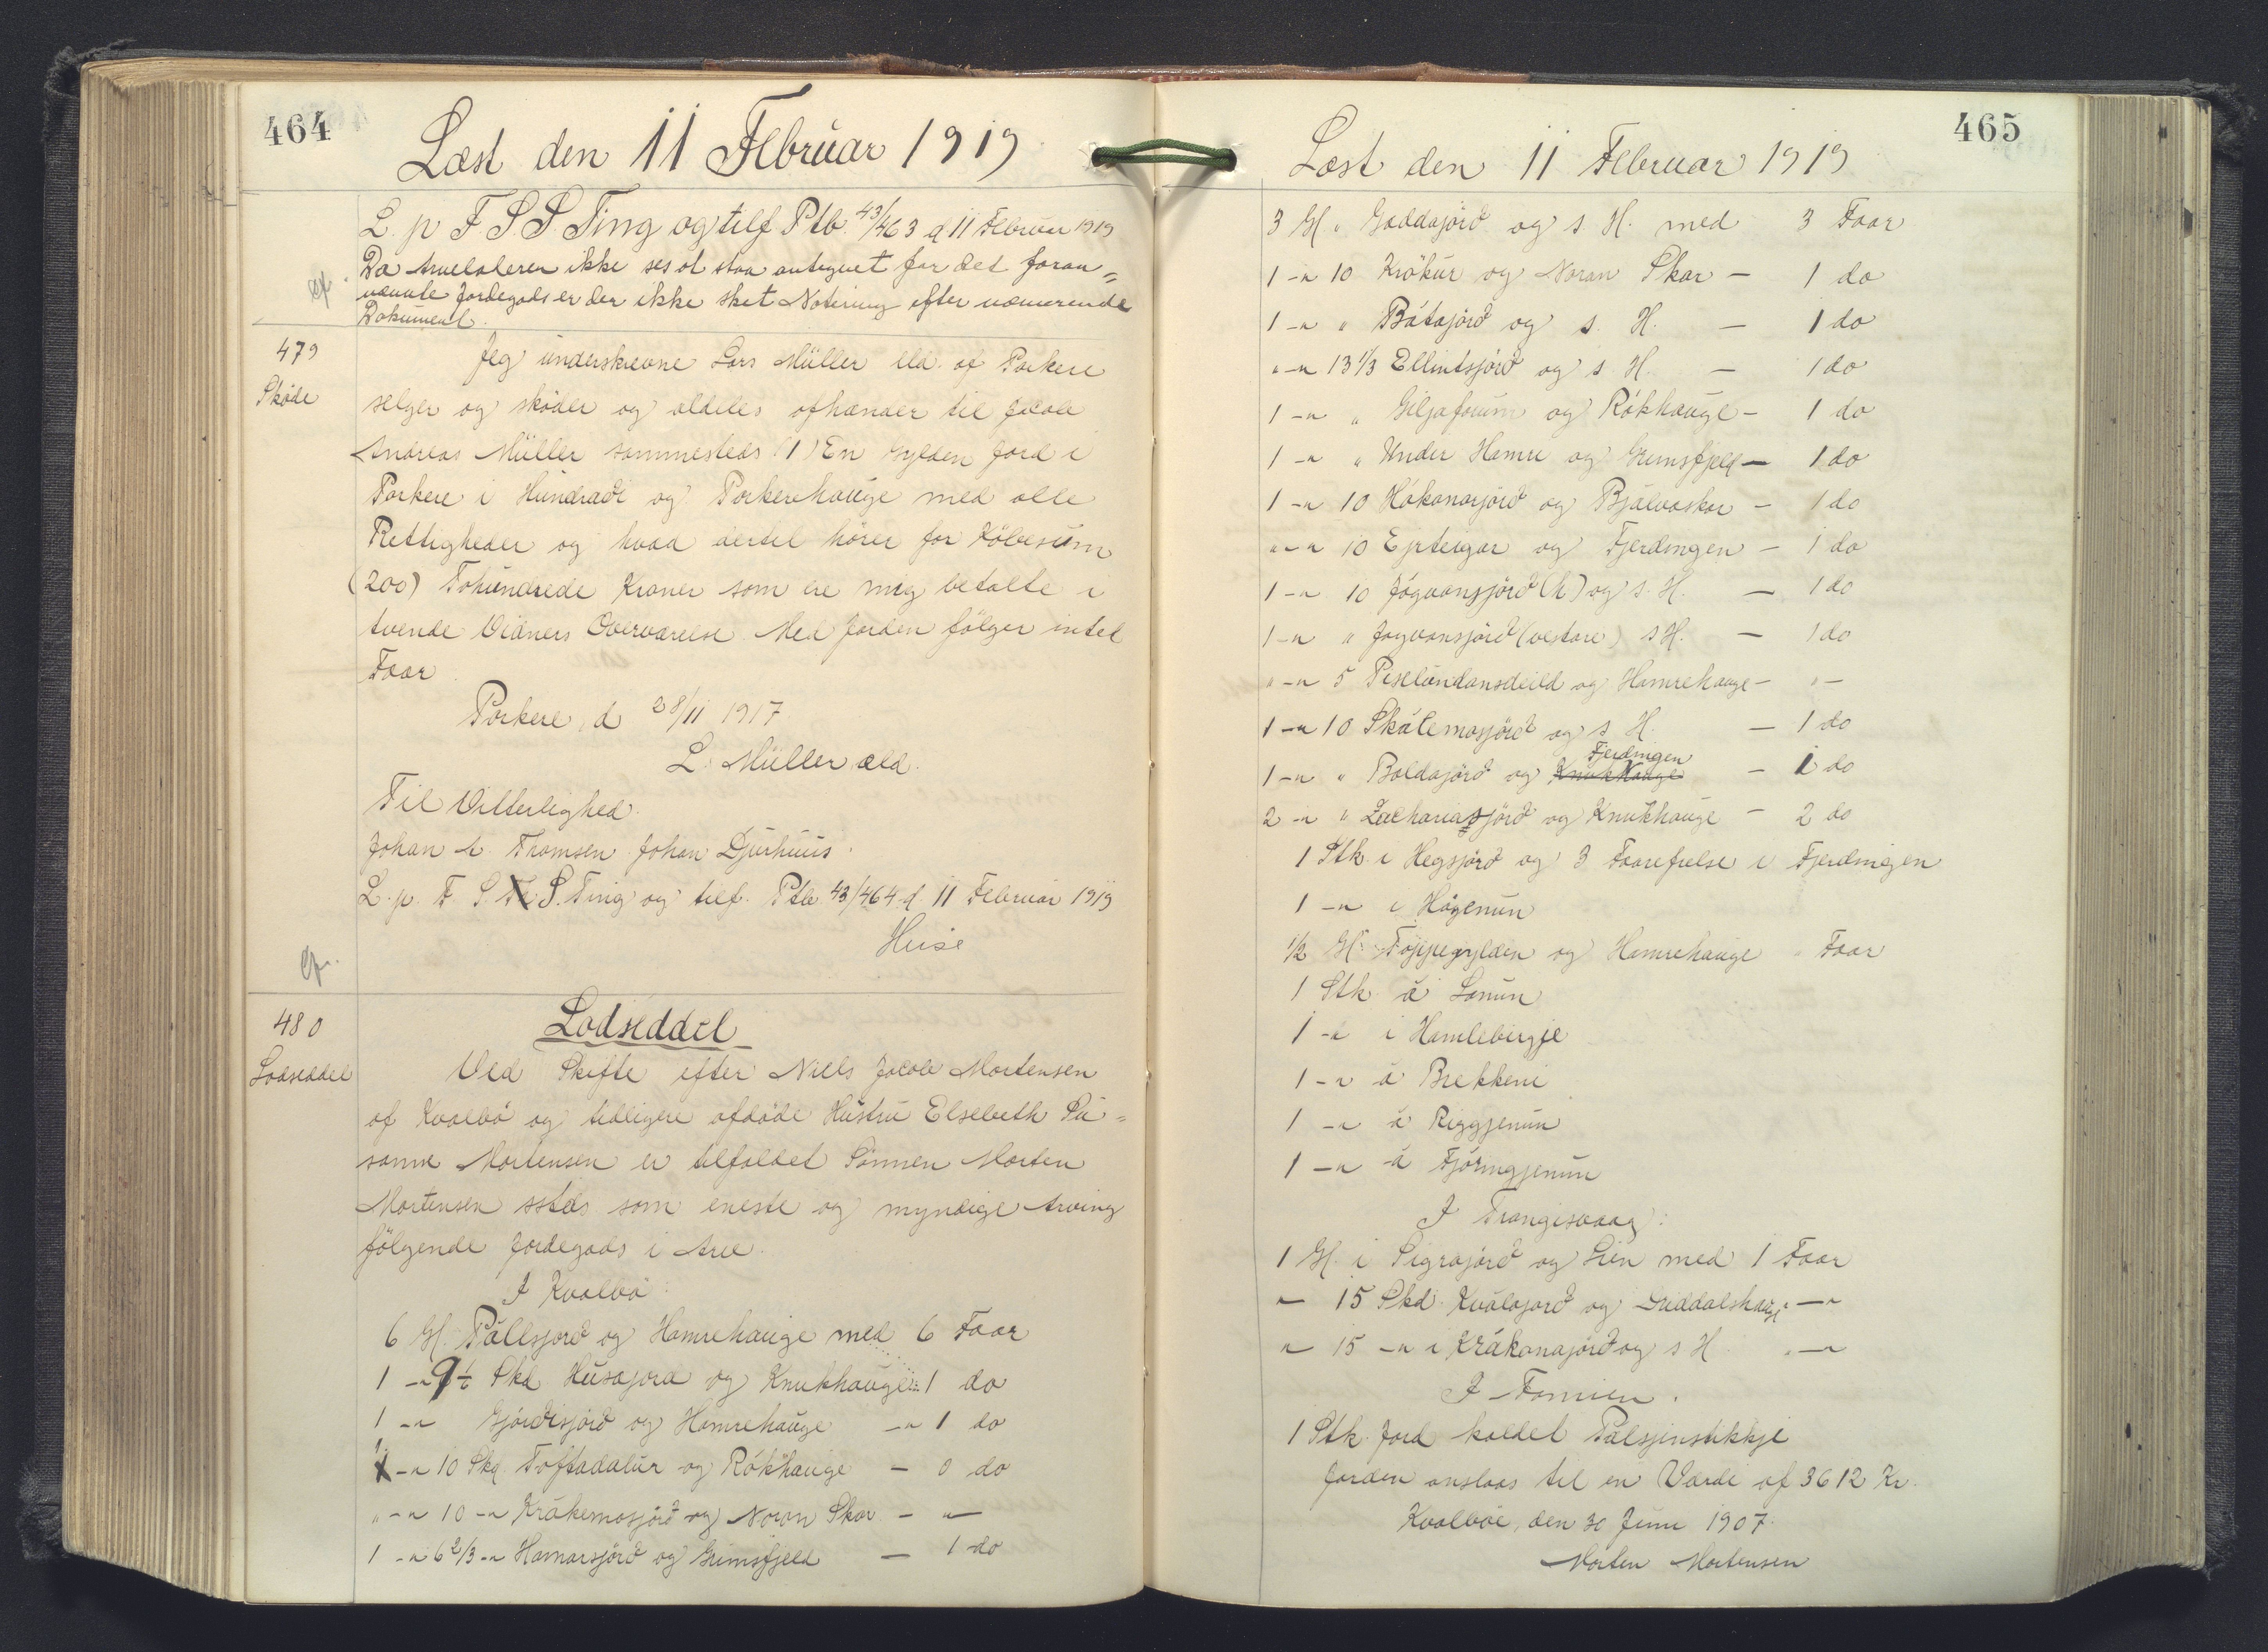 464
Læst den 11 Februar 1919
L. p F. S. S Ting og tilf Ptb. 43/463 d 11 Februar 1919
Da Arveladeren ikke ses at staa antegnet for det foran=
nævnte Jordegods er der ikke sket Notering efter nærværende
Dokument.
479
Skøde
Jeg underskrevne Lars Müller eld. af Porkere
selger og skøder og aldeles afhænder til Jacob
Andreas Müller sammesteds (1) En Gylden Jord i
Porkere i Hundradi og Porkerehauge med alle
Rettigheder og hvad dertil hører for Købesum
(200) Tohundrede Kroner som ere mig betalte i
tvende Vidners Overværelse. Med Jorden følger intet
Faar.
Porkere, d 28/11 1917.
L. Müller æld.
Til Vitterlighed.
Johan M. Thomsen Johan Djurhuus.
L. p. F. S. S. Ting og tilf. Ptb 43/464 d. 11 Februar 1919
Heise
480
Lodseddel
Lodseddel
Ved Skifte efter Niels Jacob Mortensen
af Kvalbø og tidligere afdøde Hustru Elsebeth Su=
sanne Mortensen er tilfaldet Sønnen Morten
Mortensen sstds som eneste og myndige Arving
følgende Jordegods i Arve.
I Kvalbø:
6 Gl. Pállsjord og Hamrehauge med 6 Faar
1 -"- 9½ Skd Húsajord og Knukhauge 1 do
1 -"- Gjørdisjørð og Hamrehauge -"- 1 do
1 -"- 10 Skd. Toftadalur og Rókhauge - 0 do
" -"- 10 -"- Krákemosjørð og Noran Skar - "-
1 -"- 6 2/3 -"- Hamarsjørð og Grimsfjeld - 1 do
465
Læst den 11 Februar 1919
3 Gl. " Gaddajørð og s H. med 3 Faar
1 -"- 10 Krókur og Noran Skar - 1 do
1 -"- " Bátajørð og s. H. - 1 do
" -"- 13 1/3 Ellintsjørð og s H. - 1 do
1 -"- " Giljaforum og Rókhauge - 1 do
1 -"- " Under Hamre og Grimsfjeld - 1 do
1 -"- 10 Hákonarjørð og Bjálvaskor - 1 do
" -"- 10 Ejrteigar og Fjerdingen - 1 do
1 -"- 10 Jógvansjørð (h) og s. H. - 1 do
1 -"- " Jogvansjørð (vestare) s H. - 1 do
" -"- 5 Piselundansdeild og Hamrehauge - " -
1 -"- 10 Skálemosjørð og s H. - 1 do
1 -"- " Baldajørð og Knukhauge Fjerdingen - 1 do
2 -"- " Zachariasjørð og Knukhauge - 2 do
1 Stk i Hegsjørð og 3 Faarefrelse i Fjerdingen
1 -"- i Hágenun
1/2 Gl. Toppegylden og Hamrehauge " Faar
1 Stk. á Lonun
1 -"- i Hamlebirgje
1 -"- á Brekkeni
1 -"- á Riggjenun
1 -"- á Fjóringjenun
I Trangisvaag:
1 Gl. i Sigrajørð og Lien med 1 Faar
" 15 Skd. Kválajord og Liddalshauge " -"-
" 15 -"- i Krákanajørð og s H. " -"-
I Famien.
1 Stk. Jord kaldet Pálsjinstikkje
Jorden anslaas til en Værdi af 3612 Kr.
Kvalbøe, den 30 Juni 1907.
Morten Mortensen